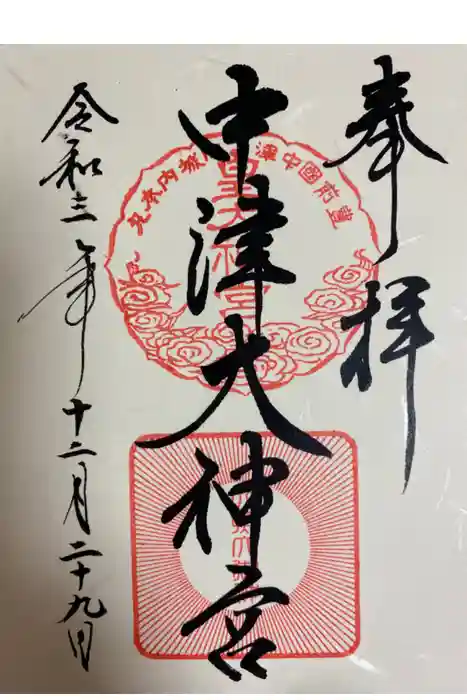 奉拝
中津大神宮
豊前國中津
令和三年十二月二十九日